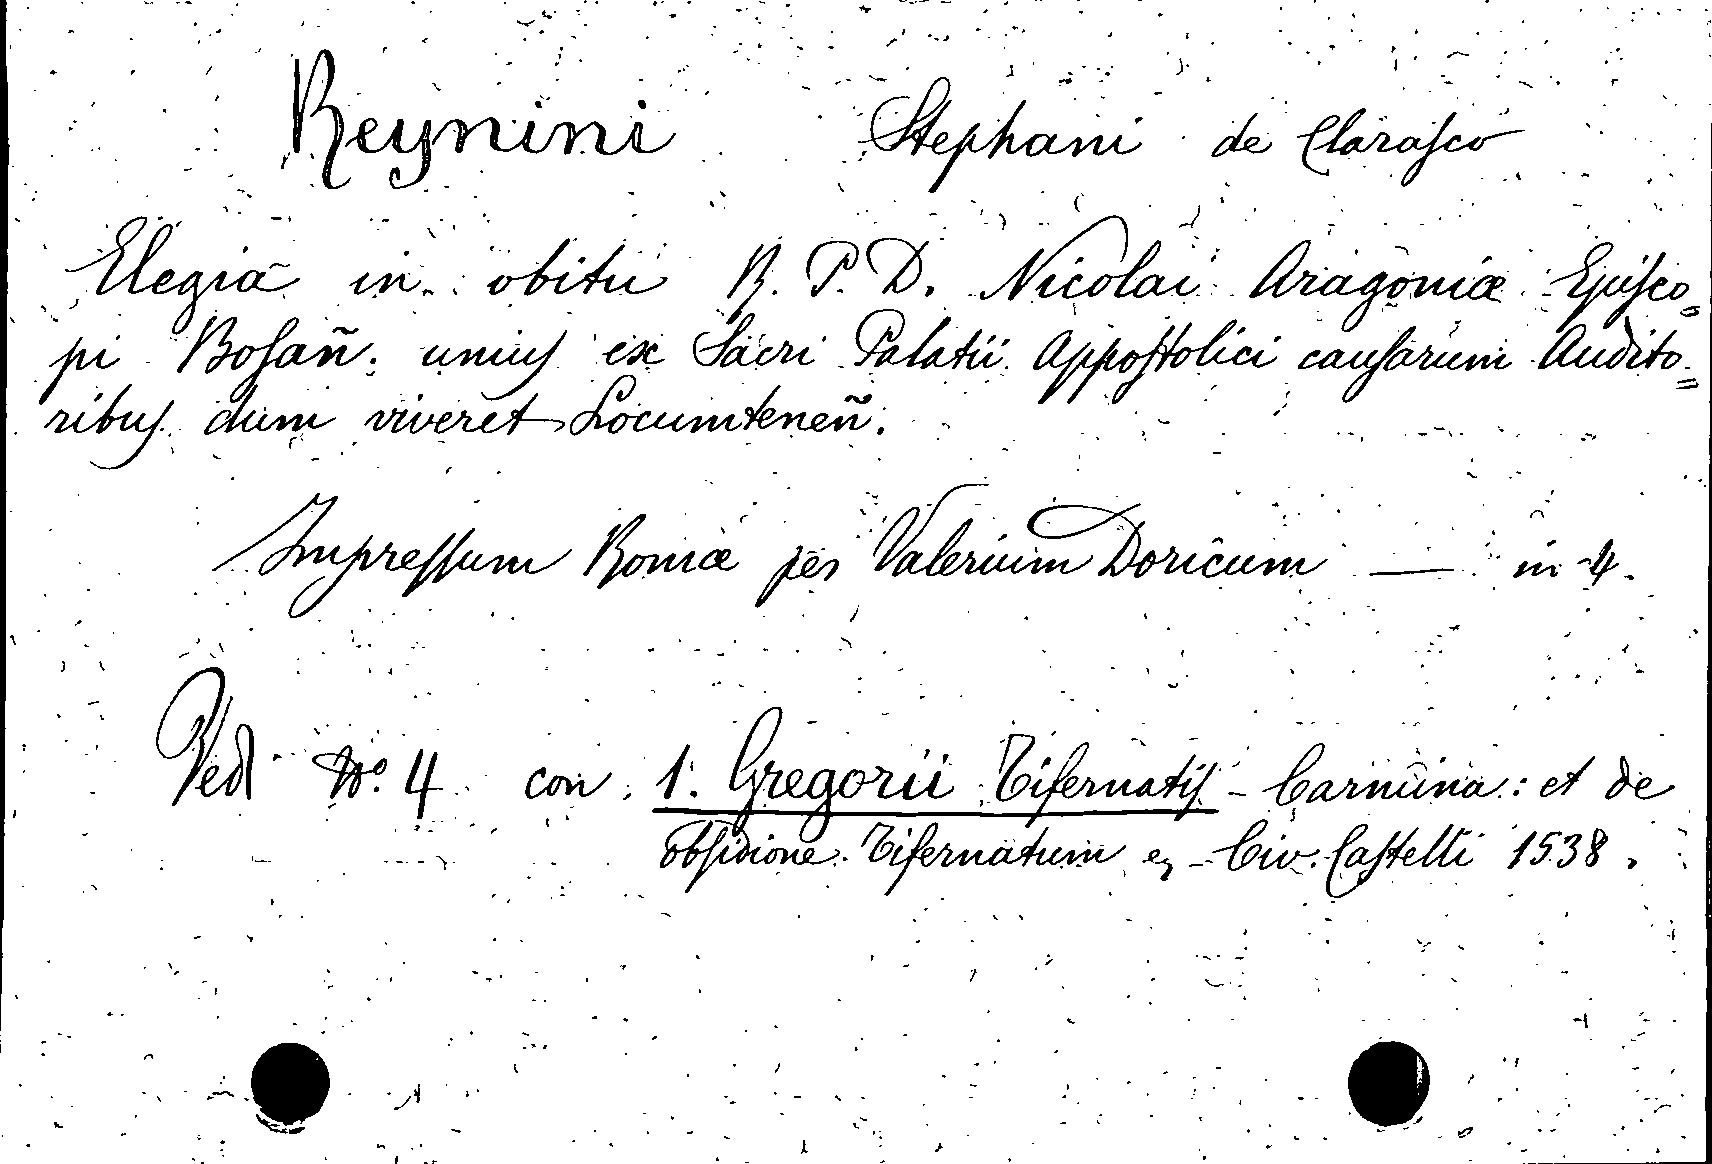 Reynini Stephani de Clarasco
Elegia in obitu R. P. D. Nicolai Aragoniæ Episco=
pi Bosañ. unius ex Sacri Palatii Appostolici causarum Audito=
ribus dum viveret Locumteneñ.
Impressum Romæ per Valerium Doricum — in 4.
Vedi No. 4 con 1. Gregorii Tifernatis - Carmina: et de
obsidione Tifernatum - Civ. Castelli 1538.